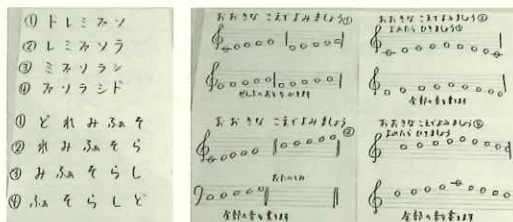 ① ドレミファソ
② レミファソラ
③ ミファソラシ
④ ファソラシド
① どれみふぁそ
② れみふぁそら
③ みふぁそらし
④ ふぁそらしど
おおきな こえでよみましょう①
おおきな こえでよみましょう
よめたら ひきましょう
全部の音を書きます
おおきな こえでよみましょう
②
全部の音を書きます
おおきな こえでよみましょう
よめたら ひきましょう
全部の音を書きます